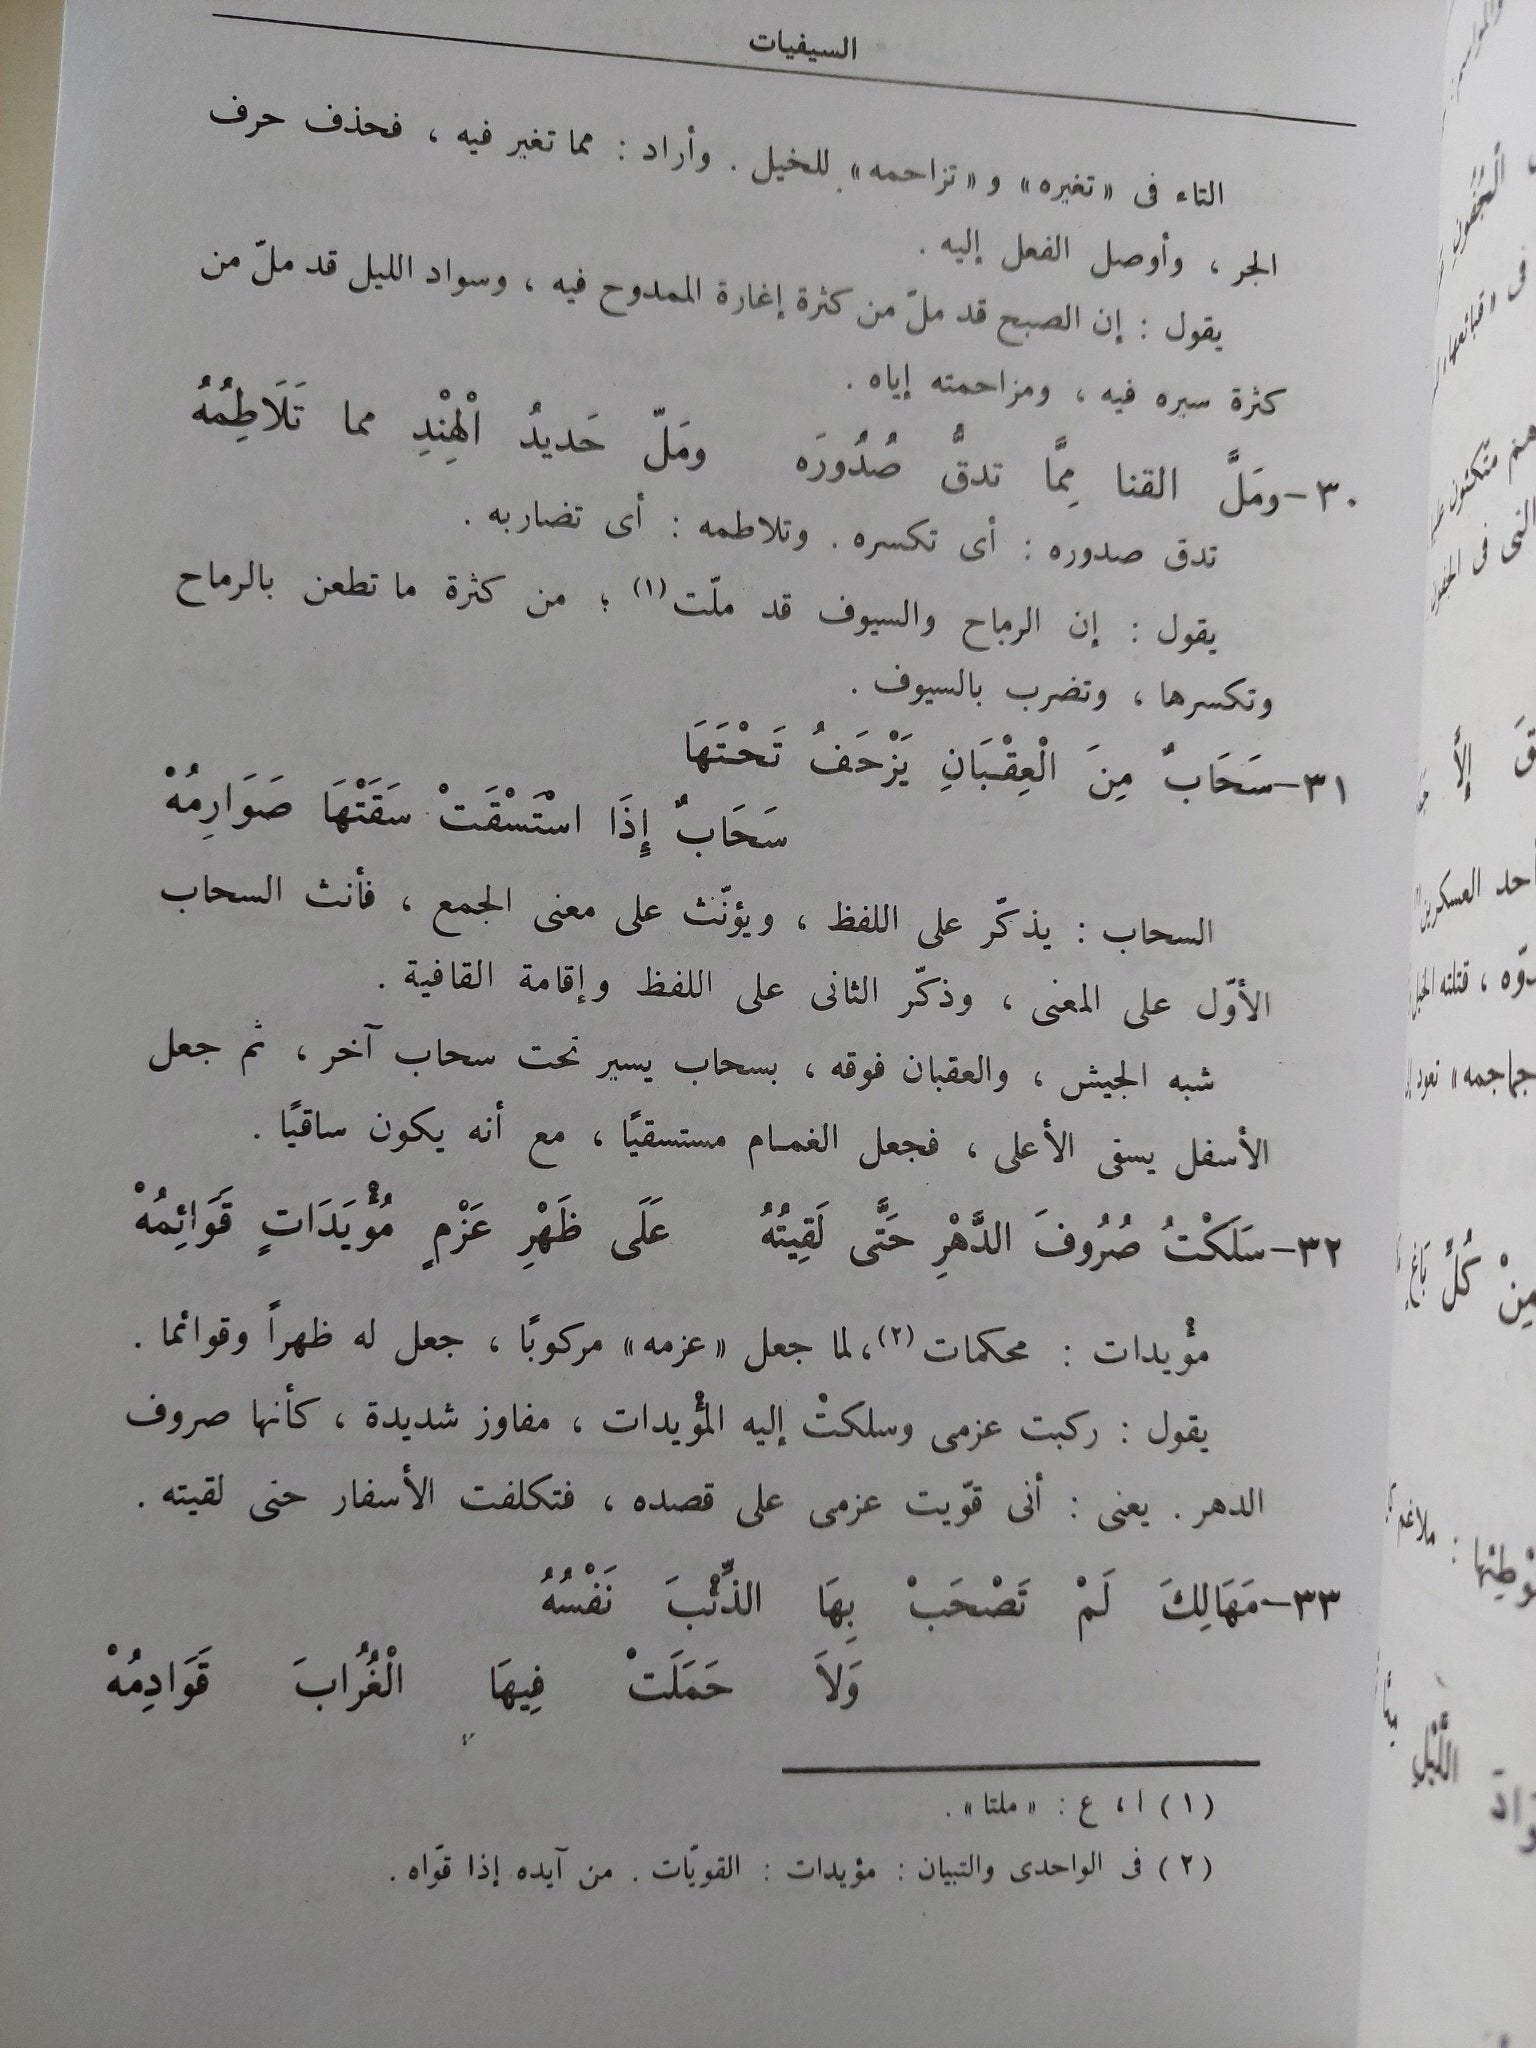 السيفيات
التاء فى «تغيره» و «تزاحمه» للخيل . وأراد : مما تغير فيه ، فحذف حرف
الجر ، وأوصل الفعل إليه .
يقول : إن الصبح قد ملّ من كثرة إغارة الممدوح فيه ، وسواد الليل قد ملّ من
كثرة سيره فيه ، ومزاحمته إياه .
٣٠-ومَلَّ القنا مِمَّا تدقُّ صُدُورَه ومَلّ حَديدُ الْهِنْدِ مما تَلَاطِمُهُ
تدق صدوره : أى تكسره . وتلاطمه : أى تضاربه .
يقول : إن الرماح والسيوف قد ملّت(١) ؛ من كثرة ما تطعن بالرماح
وتكسرها ، وتضرب بالسيوف .
٣١-سَحَابٌ مِنَ الْعِقْبَانِ يَزْحَفُ تَحْتَهَا
سَحَابٌ إِذَا اسْتَسْقَتْ سَقَتْهَا صَوَارِمُهْ
السحاب : يذكّر على اللفظ ، ويؤنّث على معنى الجمع ، فأنث السحاب
الأوّل على المعنى ، وذكّر الثانى على اللفظ وإقامة القافية .
شبه الجيش ، والعقبان فوقه ، بسحاب يسير تحت سحاب آخر ، ثم جعل
الأسفل يسقى الأعلى ، فجعل الغمام مستسقيًا ، مع أنه يكون ساقيًا .
٣٢-سَلَكْتُ صُرُوفَ الدَّهْرِ حَتَّى لَقِيتُهُ عَلَى ظَهْرِ عَزْمٍ مُؤْيَدَاتٍ قَوَائِمُهْ
مؤْيدات : محكمات(٢)، لما جعل «عزمه» مركوبًا ، جعل له ظهراً وقوائما .
يقول : ركبت عزمى وسلكتْ إليه المؤْيدات ، مفاوز شديدة ، كأنها صروف
الدهر . يعنى : أنى قوّيت عزمى على قصده ، فتكلفت الأسفار حتى لقيته .
٣٣-مَهَالِكَ لَمْ تَصْحَبْ بِهَا الذِّئْبَ نَفْسُهُ
وَلاَ حَمَلَتْ فِيهَا الْغُرُابَ قَوَادِمُهْ
(١) ا ، ع : «ملتا» .
(٢) فى الواحدى والتبيان : مؤيدات : القويّات . من آيده إذا قوّاه .